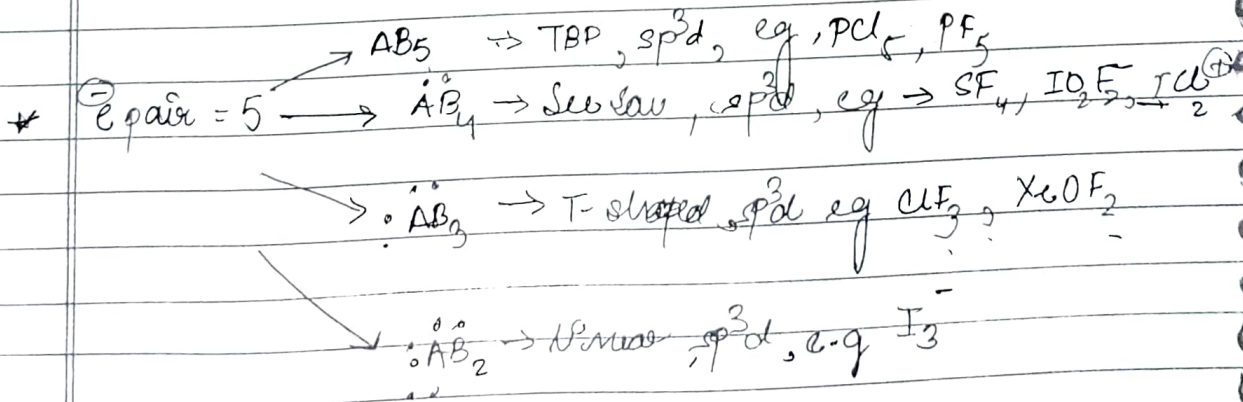 AB₅ → TBP, sp³d, eg, PCl₅, PF₅
* e⊖ pair = 5 → AB₄ → See Saw, sp³d, eg → SF₄, IO₂F₂, ICl₂⊕
AB₃ → T-shaped, sp³d eg ClF₃, XeOF₂
AB₂ → linear, sp³d, e.g I₃⁻